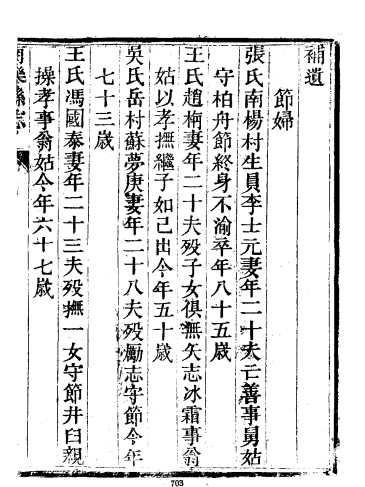 補遺
節婦
張氏南楊村生員李士元妻年二十夫亡善事舅姑
守柏舟節終身不渝卒年八十五歲
王氏趙栴妻年二十夫歿子女俱無矢志冰霜事翁
姑以孝撫繼子如己出今年五十歲
吳氏岳村蘇夢庚妻年二十八夫歿勵志守節今年
七十三歲
王氏馮國泰妻年二十三夫歿撫一女守節井臼親
操孝事翁姑今年六十七歲
縣志
703